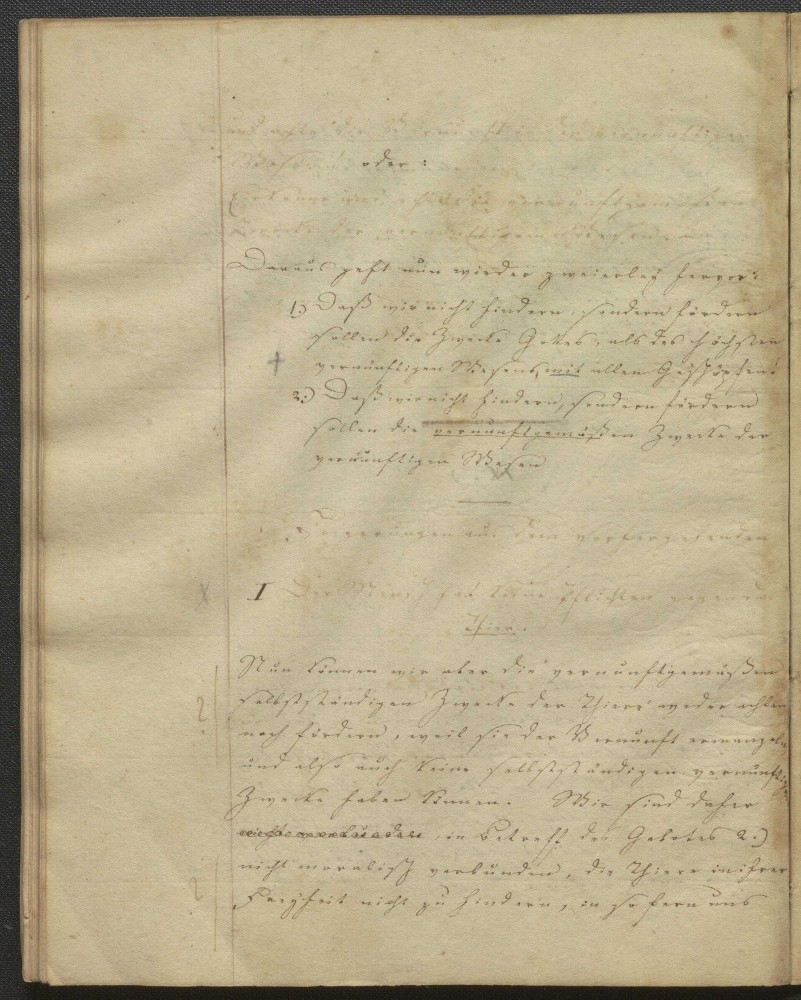 und achte die Vernunft in den vernünftigen
Wesen. oder:
vernunftgemäßen
Zwecke der vernünftigen Wesen
Daraus geht nun wieder zweierley hervor:
1.) Daß wir nicht hindern, sondern fördern
sollen die Zwecke Gottes, als des höchsten
vernünftigen Wesens, mit allen Geschöpfen.
2.) Daß wir nicht hindern, sondern fördern
sollen die vernunftgemäßen Zwecke der
vernünftigen Wesen
Folgerungen aus dem vorhergehenden
I Der Mensch hat keine Pflichten gegen die
Thiere.
Nun können wir aber die vernunftgemäßen
selbstständigen Zwecke der Thiere weder achten
noch fördern, weil sie der Vernunft ermangeln,
und also auch keine selbstständigen vernünftigen
Zwecke haben können. Wir sind daher
in Betreff des Gebotes 2.)
nicht moralisch verbunden, die Thiere in ihrer
Freyheit nicht zu hindern, in so fern uns